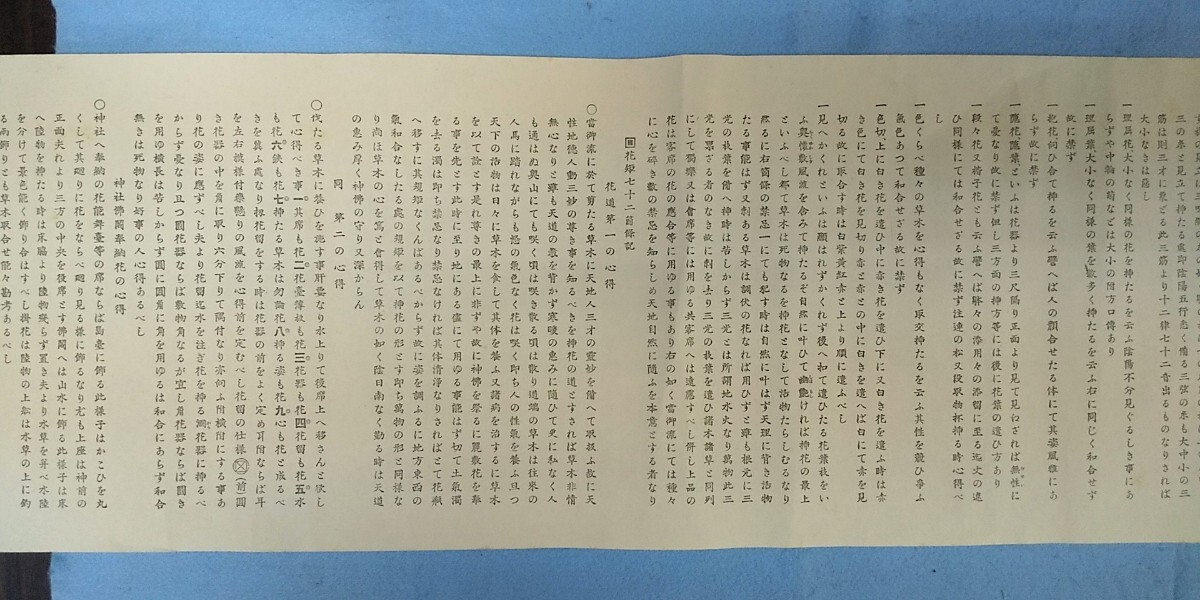 三の本と見立て挿たる處即陰陽五行悉く備る三弦の本も大中小の三
筋は則三才に象どる此三筋より十二律七十二音出るものも大小なされば
大小なきは悪し
一理屈花大小なく同様の花を挿たるを云ふ陰陽不分見ぐるしき事にあ
らずや中物の菊などは大小の附方口傳あり
一理屈葉大小なく同様の葉を數多く挿たるを云ふ右に同じく和合せず
故に禁ず
一花詞ひ合て挿花を云ふ譬へば人の顔合せたる体にて其姿風雅にあ
らず故に禁ず
一隠花隠葉といふは花器より三尺隔り正面より見て見わざれば無性に
て憂なり故に禁ず但し三方面の挿方等には後に花葉の遣ひ方あり
一段々花又梯子花とも云ふ譬へば豚々の添用々の添留に至る迄丈の違
ひ同様にては和合せざる故に禁ず注連の松又段取物抔挿る時心得べ
し
一色くらべ種々の草木を心得もなく取交挿たるを云ふ其性を競ひ爭ふ
氣色あつて和合せざる故に禁ず
一色切上に白き花を遣ひ中に赤き花を遣ひ下に又白き花を遣ふ時は赤
き色にて白き花を見切り赤と赤との中に白きを遣へば白にて赤を見
切る故に取合す時は白紫黄紅赤と上より順に遣ふべし
一見へかくれといふは顯はれずかくれず後へ扣て遣ひたる花葉枝をい
ふ奥懐數風流を含みて挿たるぞ自然に叶ひて幽艶ければ挿花の最上
といふべし都て草木は死物なるを挿花となして活物たらしむるなり
然るに右箇條の禁忌一にても犯す時は自然に叶はず天理に背き活物
たる事能はず又剣ある草木は調伏の花なれば用ひずと雖も根元に三
光の枝葉を備へ挿時は害らざる也三光とは所謂地水火なり萬物此三
光を禀ざる者のなき故に剣を去り三光の枝葉を遣ひ諸木諸草と同列
にして獨樂又は會席等には用ゆる共客席へは遠慮すべし併し上品の
花は客席の花の應合等に用ゆる事もあり右の如く當御流にては種々
に心を碎き數の禁忌を知らしめ天地自然に隨ふを本意とする者なり
花傳七十二箇條記
花道第一の心得
○當御流に於て剪たる草木に天地人三才の靈妙を備へて取扱ふ故に天
性地徳人動三妙の尊き事を知るべきを挿花の道とすされば草木非情
無心なりと雖も天道の教を背かず寒暖の惠みに隨ひて更に私なく人
も通はぬ奥山にても咲く頃は咲き散る頃は散り道端の草木は往來の
人馬に踏れながらも恐の氣色なく花は咲く即ち人の性氣を養ふ且つ
天下の活物は日々に草木を食して其体を養ふ又諸病を治するに草木
を以て詮とす是れ尊きの最上に非ずや故に神佛を祭るに麗敷花を奉
る事を先とす此時に至り地にある儘にて用ゆる事能はず切て土氣濁
を去る濁は即ち禁忌なり禁忌なければ其體清浄なりされば花瓶
へ移すに其規矩なくんばあるべからず故に姿を調ふるに地方東西の
氣和合なしたる處の規矩を以て挿花の形とす即ち萬物の形と同様な
り尚ほ草木の心を寫と會得して草木の如く陰日南なく勤る時は天道
の惠み厚く神佛の守り又深からん
同 第二の心得
○伐たる草木に養ひを施す事肝要なり水上りて後席上へ移さんと欲し
て心得べき事一其席も花二花臺薄板も花三花器も花四花留も花五水
も花六鋏も花七挿たる草木は勿論花八挿る姿も花九心も花と成るべ
きを冀ふ處なり扨花留をする時は花器の前をよく定め耳附ならば耳
を左右模様付藥懸りの風流を心得前を定むべし花留の仕様(前)圓
き花器の中を角に取り六分下りて隅付なり亦祠ふ附横附にする事あ
り花の姿に應ずべし夫より花留迄水を注ぎ花を挿る洞花器に挿るべ
からず憂なり且つ圓花器ならば敷物角なるが宜し角花器ならば圓き
を用ゆ横長は苦しからず圓に圓角に角を用ゆるは和合にあらず和合
無きは死物なり好事の人心得あるべし
神社佛閣奉納花の心得
○神社へ奉納の花能舞臺等の席ならば島臺に飾る此様子はかこひを丸
くして其廻りに花をならべ廻り見る様に飾るなり尤も上座は神前の
正面夫れより三方の中央を役席とす佛閣へは山水に飾る此様子は床
へ陸物を挿たる時は床脇より陸物幾らず置き夫より水草を昇べ水陸
を分けて景色能く飾り合はすべし掛花は陸物の上舩は水草の上に釣
る兩飾りとも草木取合せ能々勘考あるべし